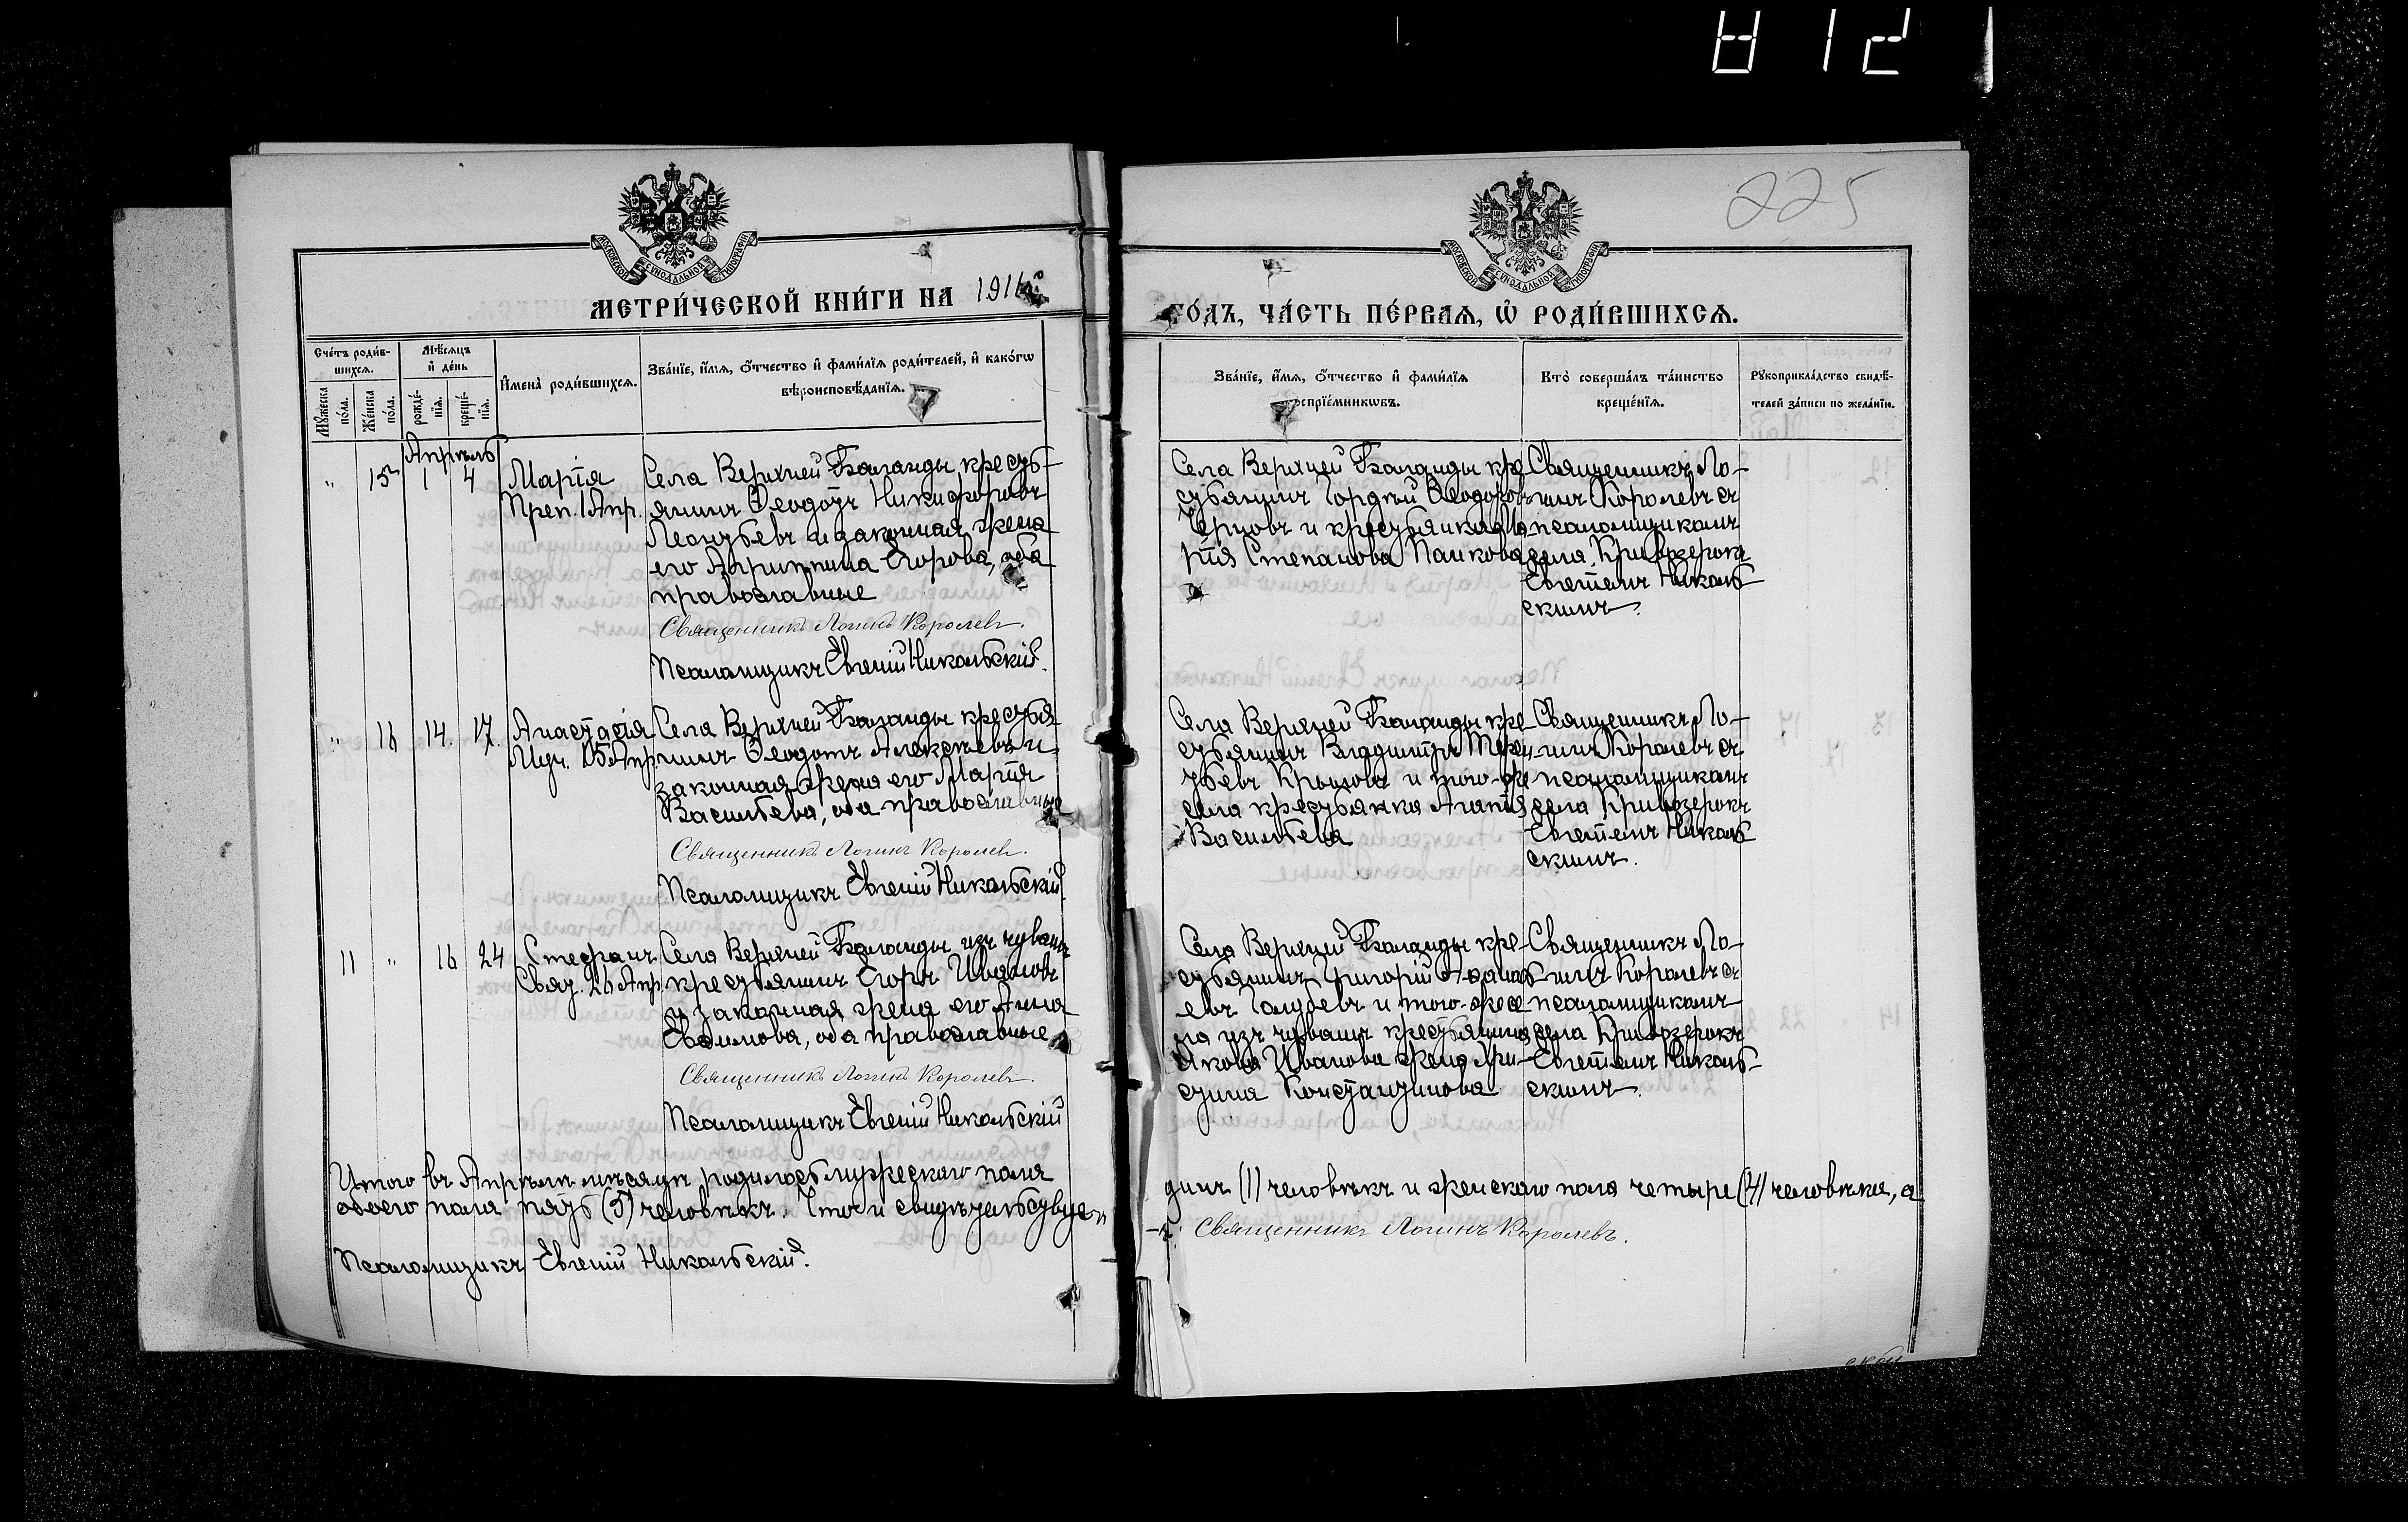 225
МОСКОВСКОЙ СѴНОДАЛЬНОЙ ТИПОГРАФІИ
МОСКОВСКОЙ СѴНОДАЛЬНОЙ ТИПОГРАФІИ
МЕТРИ́ЧЕСКОЙ КНИ́ГИ НА 1916
ГО́ДЪ, ЧА́СТЬ ПЕ́РВАѦ, Ѡ҆ РОДИ́ВШИХСѦ.
Сче́тъ роди́в-
шихсѧ.
Мѣ́сѧцъ
и҆ де́нь
Мꙋ́жеска
по́ла.
Же́нска
по́ла.
рожде́-
нїѧ.
креще́-
нїѧ.
И҆мена̀ роди́вшихсѧ.
Зва́нїе, и҆́мѧ, ѻ҆́тчество и҆ фами́лїѧ роди́телей, и҆ како́гѡ
вѣроисповѣ́данїѧ.
Зва́нїе, и҆́мѧ, ѻ҆́тчество и҆ фами́лїѧ
воспрїе́мникѡвъ.
Кто̀ соверша́лъ та́инство
креще́нїѧ.
Рꙋкоприкла́дство свидѣ́-
телей за́писи по жела́нїю.
Апрѣль
" 15 1 4
Марія
Преп. 1 Апр.
Села Верхней Баланды кресть-
янинъ Ѳеодотъ Никифоровъ
Леонтьевъ и законная жена
его Агриппина Егорова, оба
православные
Священникъ Логинъ Королевъ.
Псаломщикъ Евгеній Никольскій.
Села Верхней Баланды кре
стьянинъ Гордѣй Ѳеодоровъ
Черновъ и крестьянка Ма
рія Степанова Панкова
Священникъ Ло-
гинъ Королевъ съ
псаломщикомъ
села Кривозерокъ
Евгеніемъ Николь-
скимъ.
" 16 14. 17.
Анастасія
Муч. 15 Апр.
Села Верхней Баланды крестья
нинъ Ѳеодотъ Алексѣевъ и
законная жена его Марія
Васильева, оба православные
Священникъ Логинъ Королевъ.
Псаломщикъ Евгеній Никольскій.
Села Верхней Баланды кре
стьянинъ Владиміръ Терен-
тьевъ Крыловъ и того-же
села крестьянка Агапія
Васильева
Священникъ Ло-
гинъ Королевъ съ
псаломщикомъ
села Кривозерокъ
Евгеніемъ Николь
скимъ.
11 " 16 24
Стефанъ
Свят. 26 Апр.
Села Верхней Баланды изъ чувашъ
крестьянинъ Егоръ Ивановъ
и законная жена его Анна
Евѳимова, оба православные
Священникъ Логинъ Королевъ.
Псаломщикъ Евгеній Никольскій
Села Верхней Баланды кре-
стьянинъ Григорій Аѳанась
евъ Голубевъ и того-же се
ла изъ чувашъ крестьянина
Якова Иванова жена Хри-
стина Константинова
Священникъ Ло-
гинъ Королевъ съ
псаломщикомъ
села Кривозерокъ
Евгеніемъ Николь-
скимъ.
Итого въ Апрѣлѣ мѣсяцѣ родилось мужескаго пола
динъ (1) человѣкъ и женскаго пола четыре (4) человѣка, а
обоего пола пять (5) человѣкъ. Что и свидѣтельствуе-
тъ: Священникъ Логинъ Королевъ.
Псаломщикъ Евгеній Никольскій.